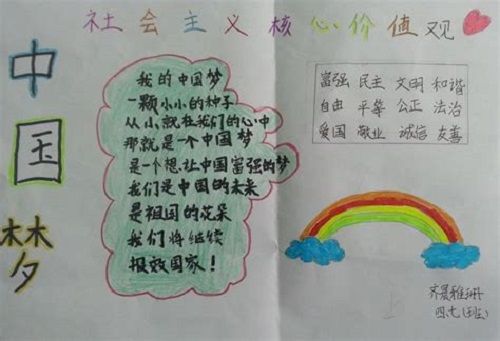 社会主义核心价值观
中国梦
我的中国梦
一颗小小的种子
从小就在我们的心中
那就是一个中国梦
是一个想让中国富强的梦
我们是中国的未来
是祖国的花朵
我们将继续
报效国家！
富强 民主 文明 和谐
自由 平等 公正 法治
爱国 敬业 诚信 友善